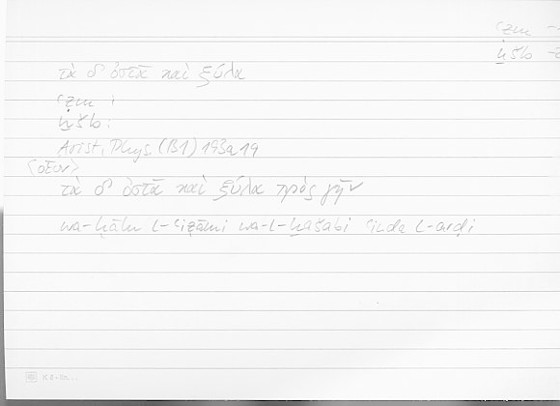 ʿẓm –
ḫšb –
τὰ δ' ὀστᾶ καὶ ξύλα
ʿẓm :
ḫšb :
Arist. Phys. (B1) 193a19
τὰ δ' ὀστᾶ καὶ ξύλα πρὸς γῆν
wa-ḥālu l-ʿiẓāmi wa-l-ḫašabi ʿinda l-arḍi